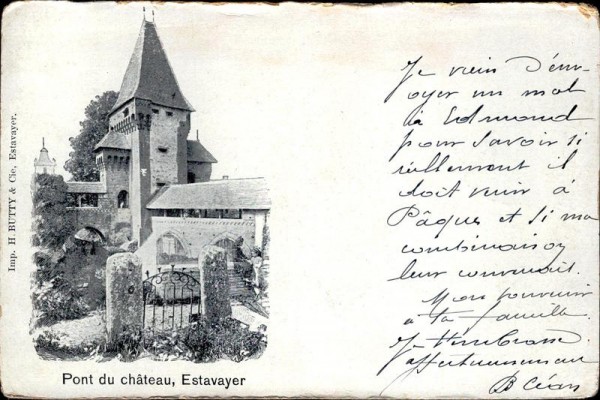 Imp. H. BUTTY & Cie, Estavayer.
Pont du château, Estavayer
Je viens d'env-
oyer un mot
à Edmond
pour savoir si
réellement il
doit venir à
Pâque et si ma
combinaison
leur convenait.
Mon souvenir
à ta famille.
Je t'embrasse
affectueusement